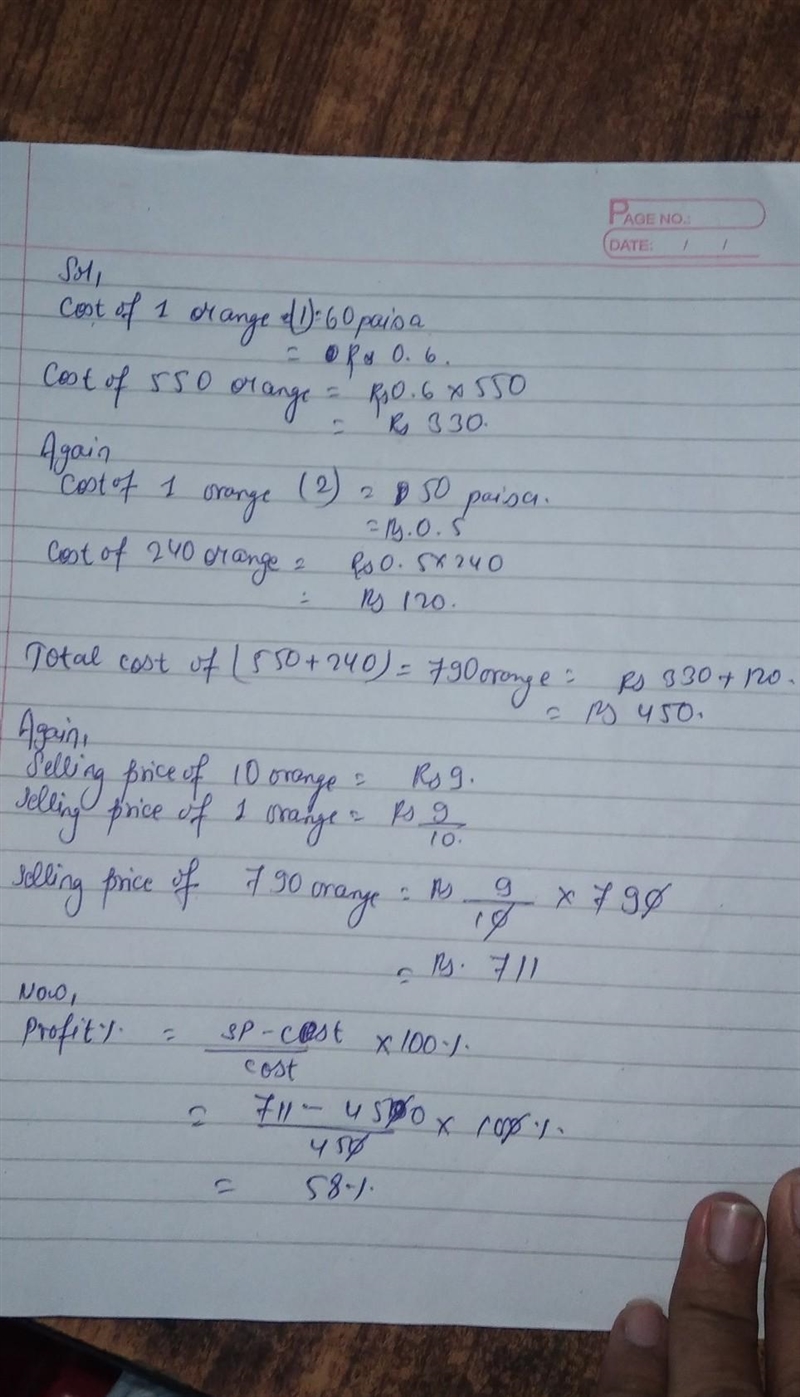 PAGE NO.:
DATE: / /
Sol,
Cost of 1 orange (1) = 60 paisa
= Rs 0.6.
Cost of 550 orange = Rs 0.6 × 550
= Rs 330.
Again
Cost of 1 orange (2) = 50 paisa.
= Rs. 0.5
Cost of 240 orange = Rs 0.5 × 240
= Rs 120.
Total cost of (550 + 240) = 790 orange = Rs 330 + 120.
= Rs 450.
Again,
Selling price of 10 orange = Rs 9.
Selling price of 1 orange = Rs 9/10.
Selling price of 790 orange = Rs 9/10 × 790
= Rs. 711
Now,
Profit % = SP - Cost / Cost × 100 %.
= 711 - 450 / 450 × 100 %.
= 58 %.